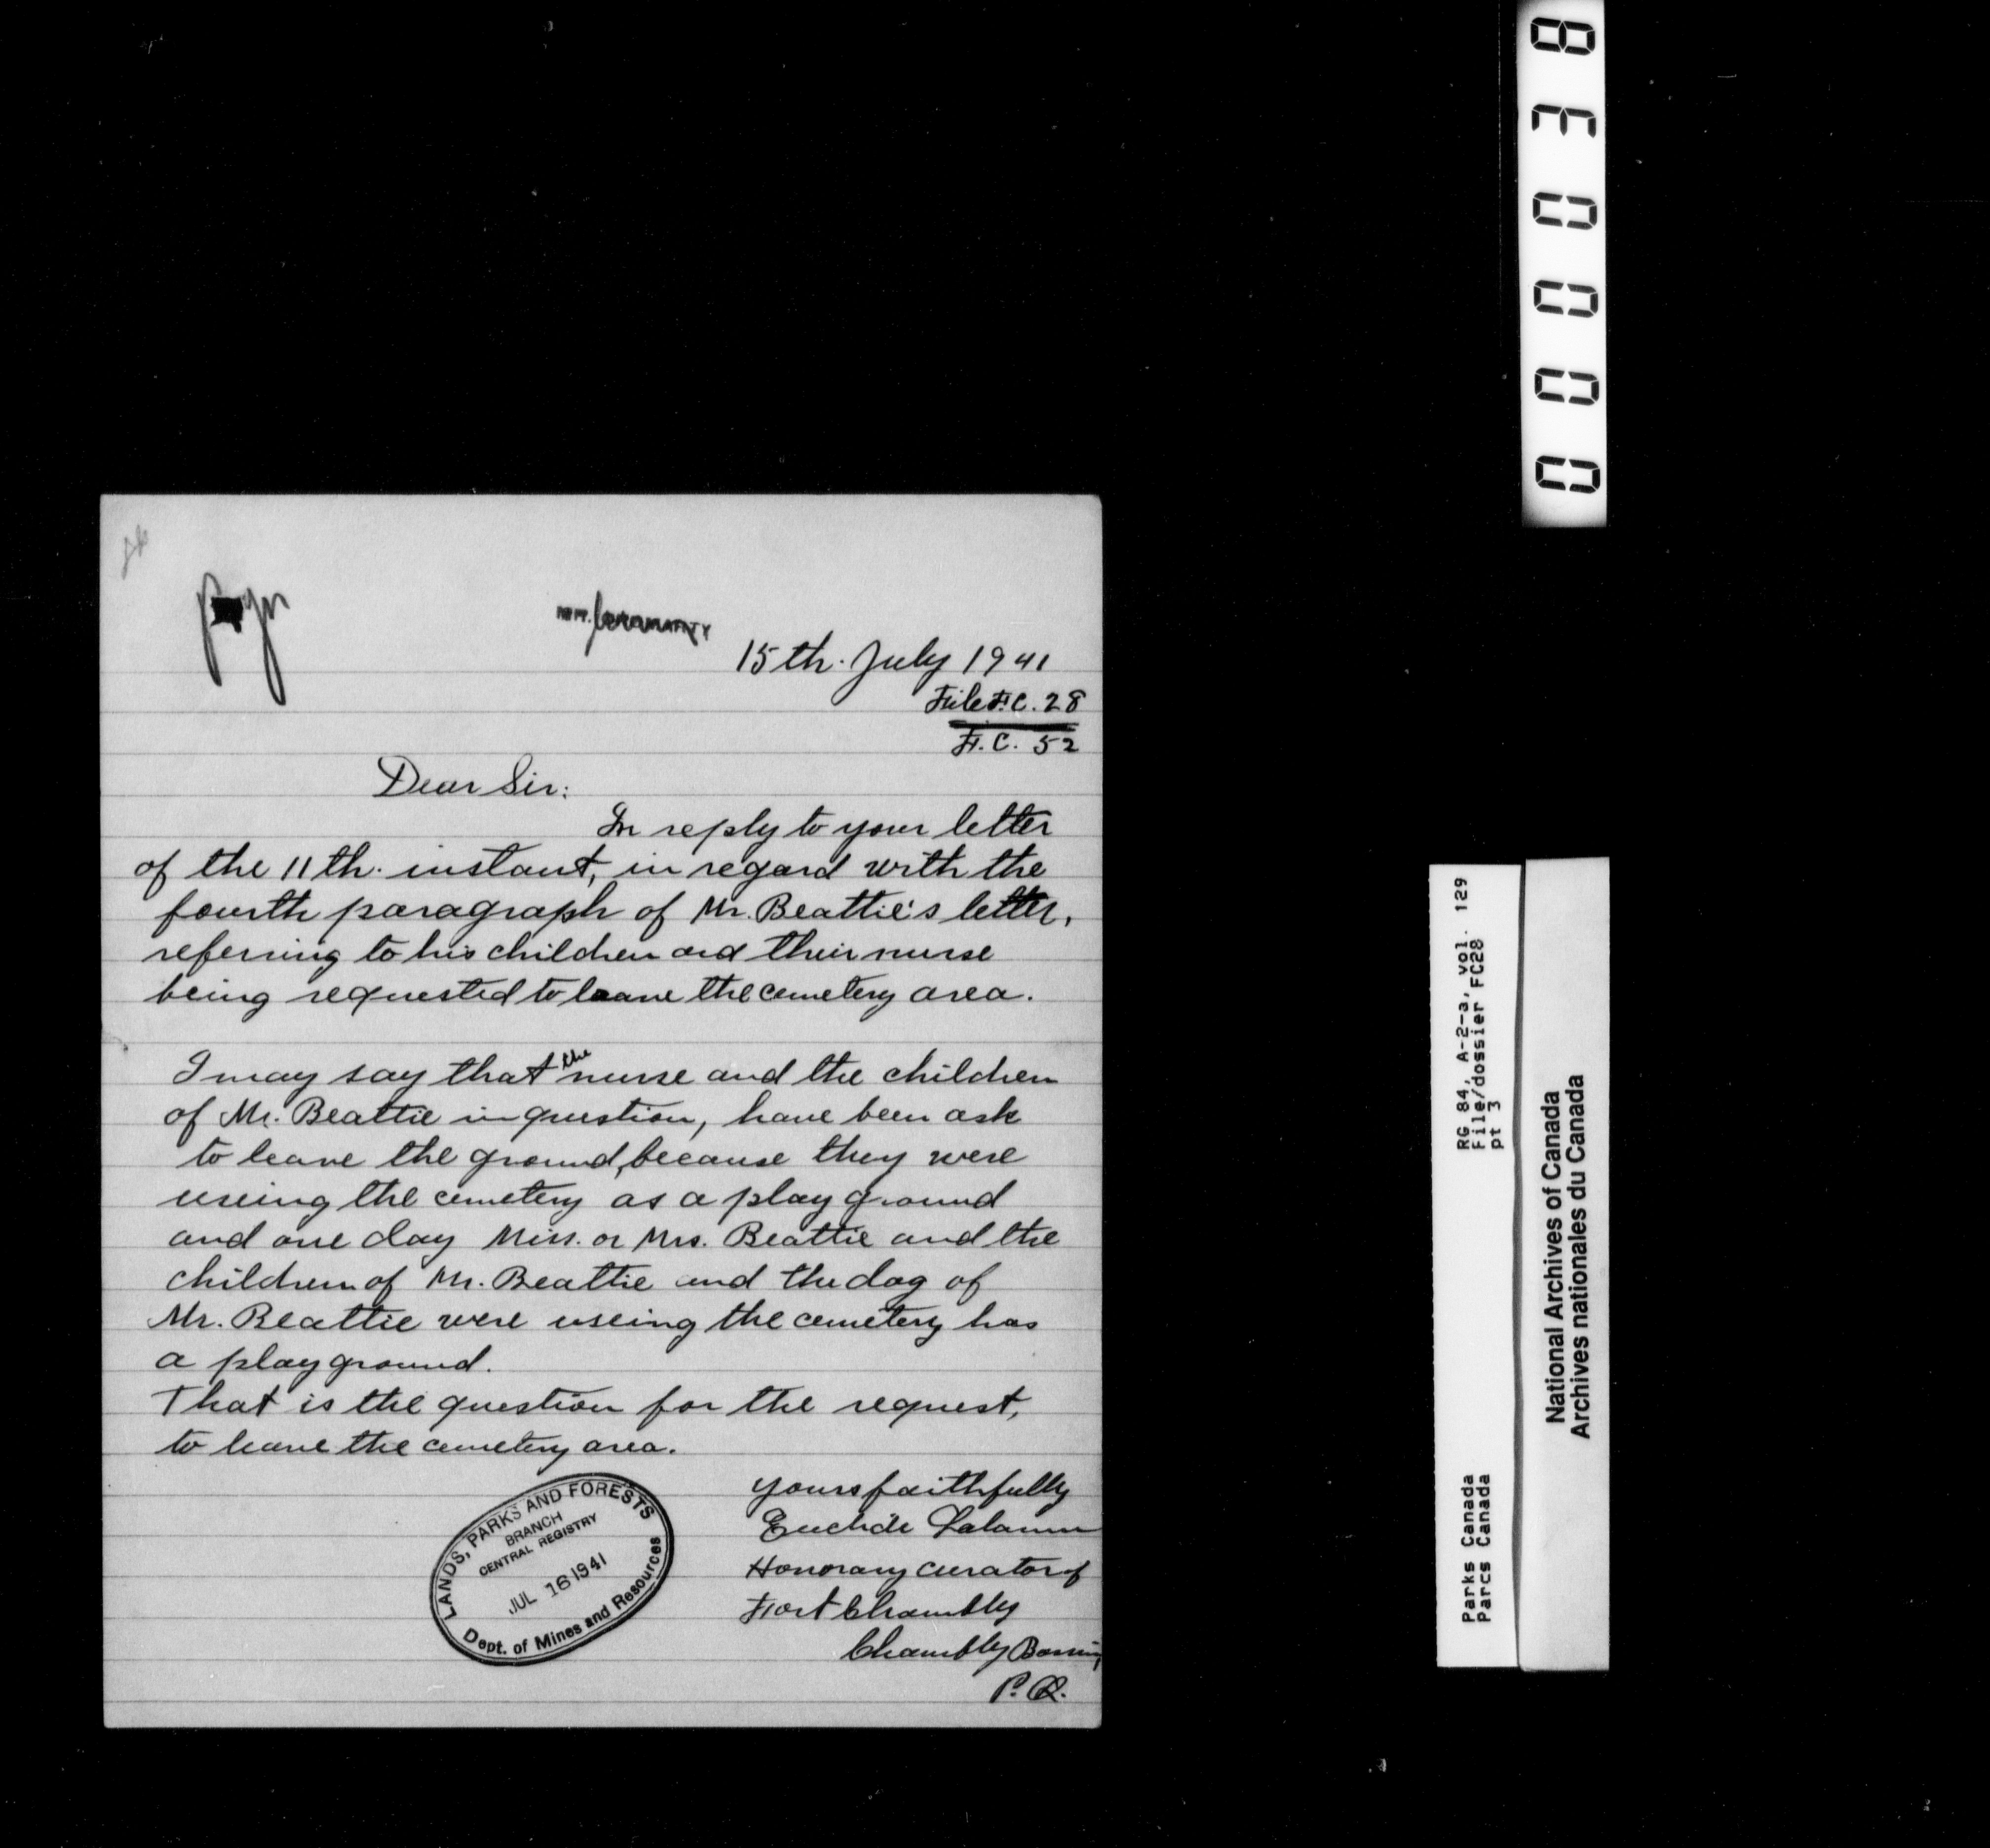 15th. July 1941
File F.C. 28
F.C. 52
Dear Sir:
In reply to your letter
of the 11th. instant, in regard with the
fourth paragraph of Mr. Beattie's letter,
referring to his children and their nurse
being requested to leave the cemetery area.
I may say that the nurse and the children
of Mr. Beattie in question, have been ask
to leave the ground, because they were
useing the cemetery as a play ground
and one day Miss. or Mrs. Beattie and the
children of Mr. Beattie and the dog of
Mr. Beattie were useing the cemetery has
a play ground.
That is the question for the request,
to leave the cemetery area.
yours faithfully
Euclide
Honorary curator of
Fort Chambly
Chambly Bassin
P.Q.
LANDS, PARKS AND FORESTS
BRANCH
CENTRAL REGISTRY
JUL 16 1941
Dept. of Mines and Resources
000038
RG 84, A-2-a, vol. 129
File/dossier FC28
pt 3
Parks Canada
Parcs Canada
National Archives of Canada
Archives nationales du Canada